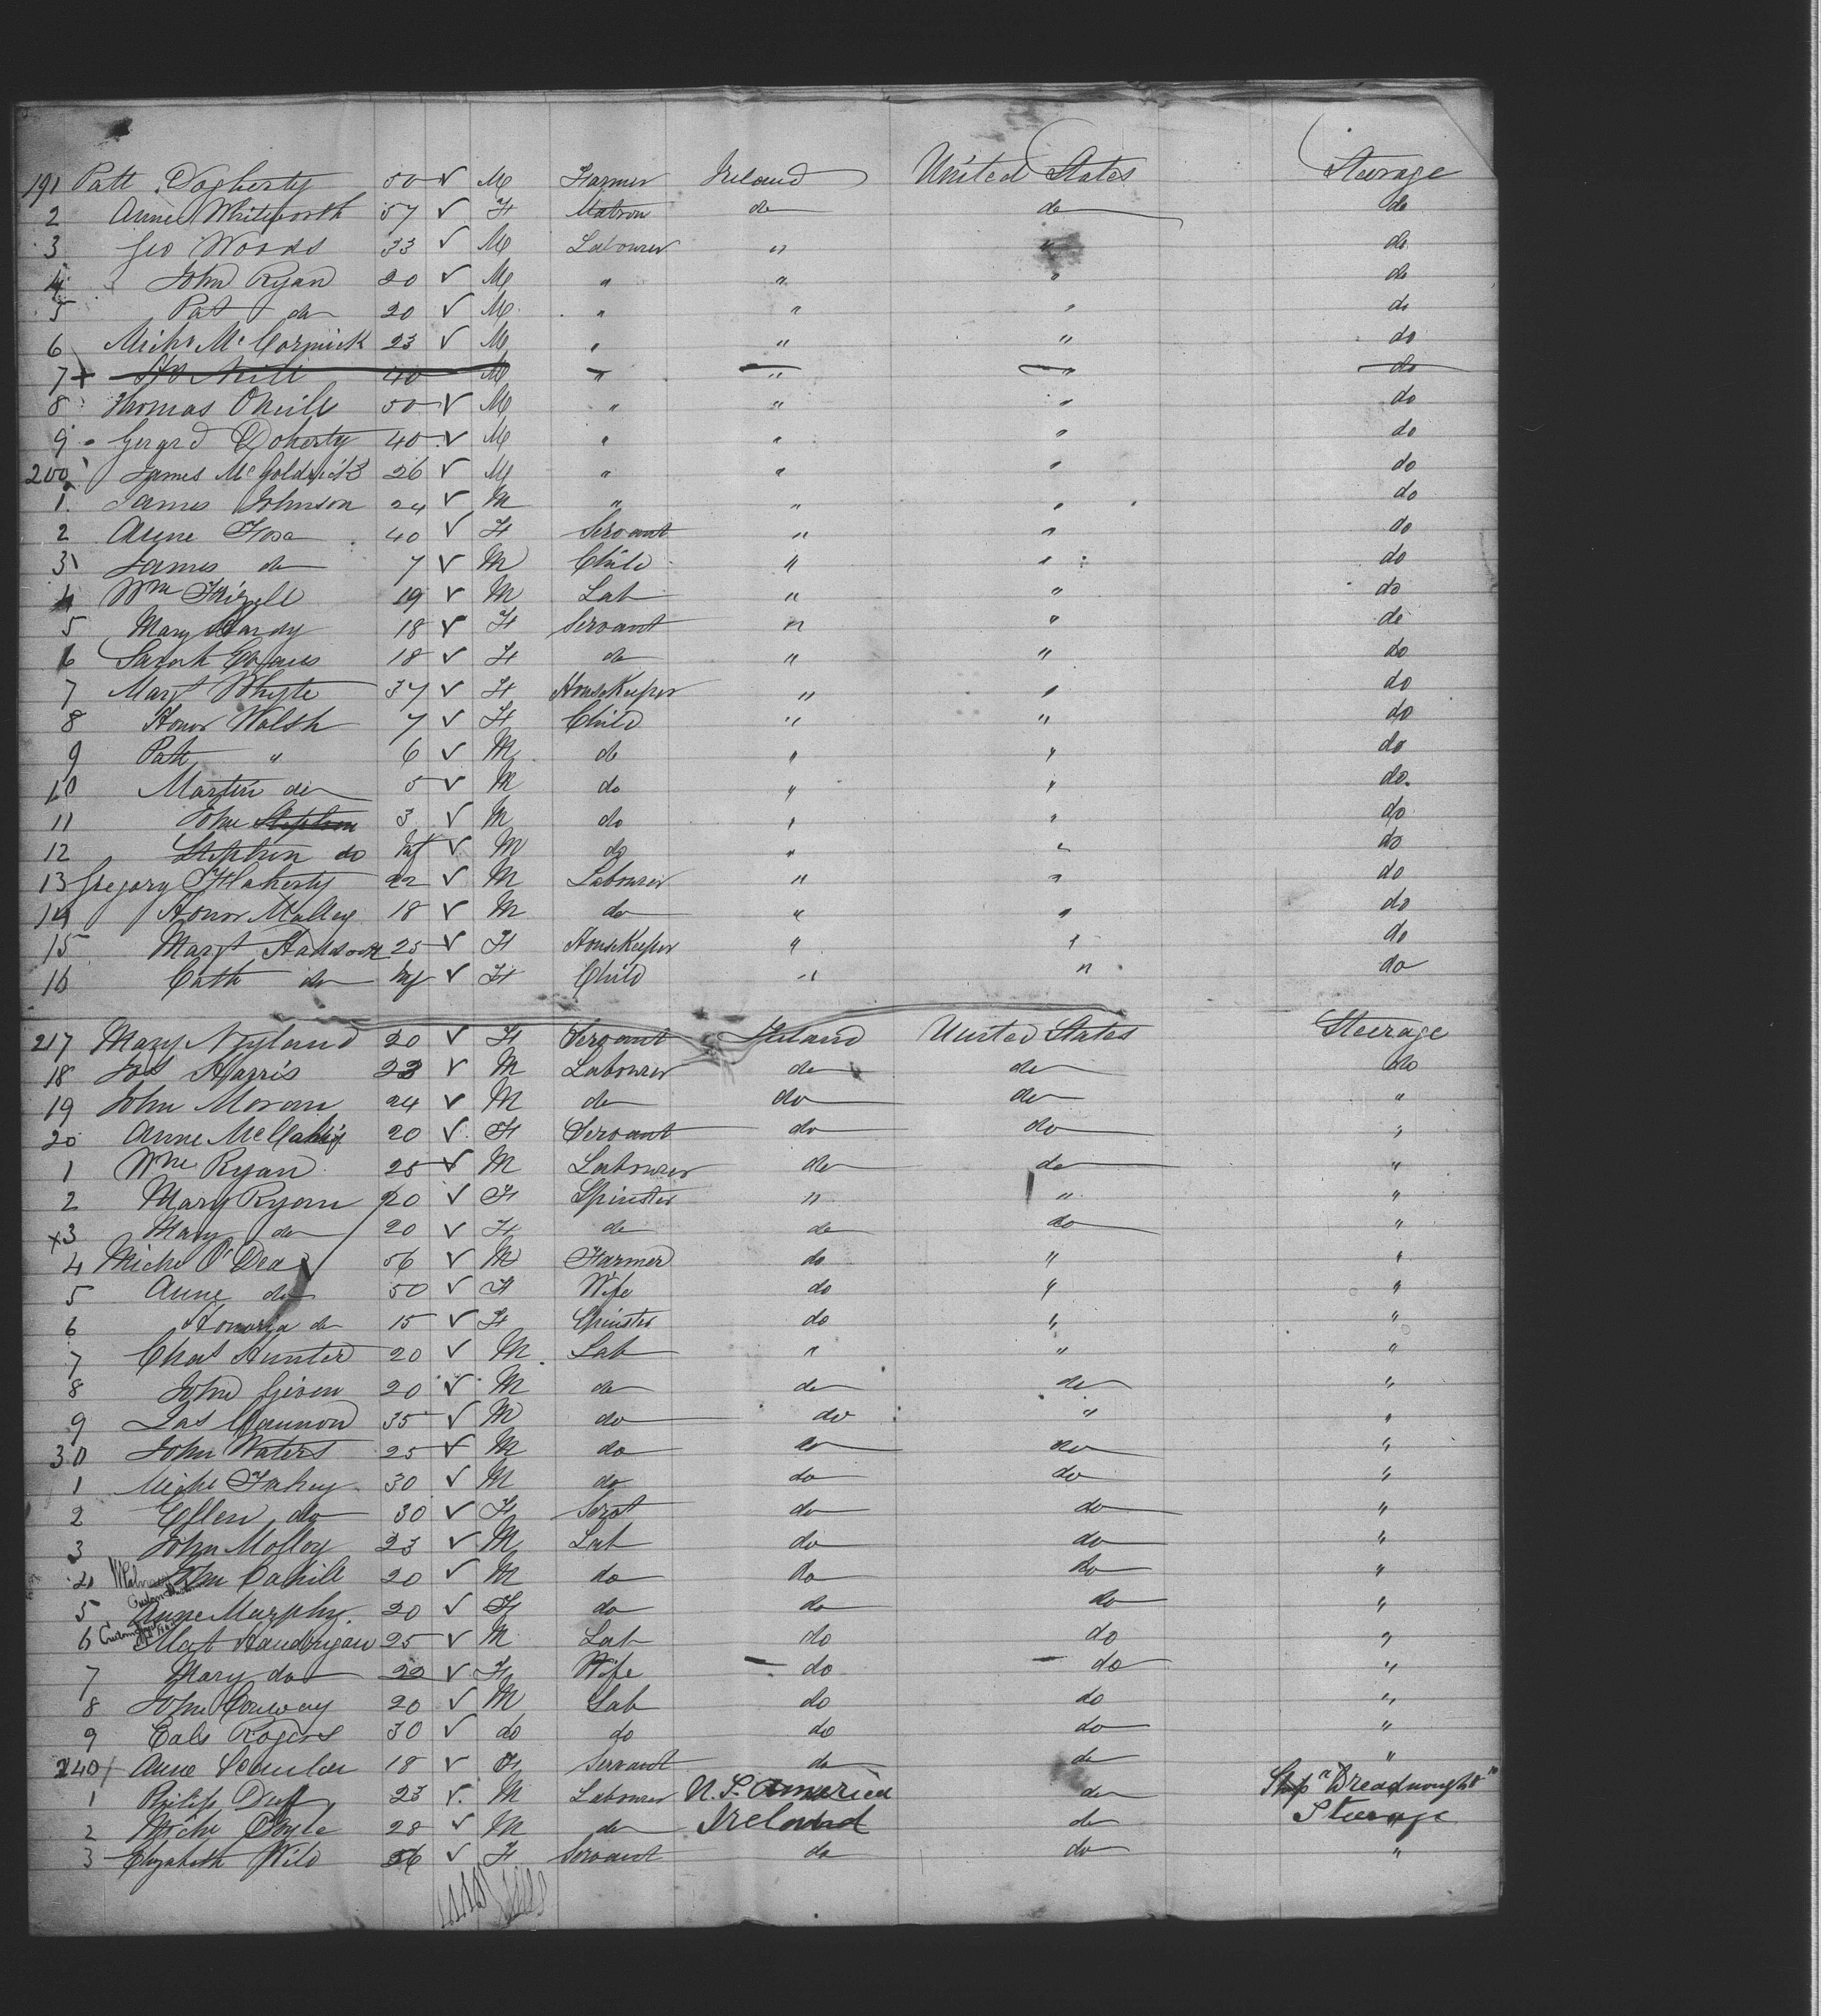 191 Patt Dogherty 50 ✓ M Farmer Ireland United States Steerage
2 Anne Whitworth 57 ✓ F Matron do do do
3 Geo Woods 33 ✓ M Labourer " " do
4 John Ryan 20 ✓ M " " " do
5 Pat do 20 ✓ M " " " do
6 Michl McCormick 23 ✓ M " " " do
7 + Neill 40 M " " " do
8 Thomas O'Neill 50 ✓ M " " " do
9 Gerard Doherty 40 ✓ M " " " do
200 James McGoldrick 26 ✓ M " " " do
1 James Johnson 24 ✓ M " " " do
2 Anne 40 ✓ F Servant " " do
3 James do 7 ✓ M Child " " do
4 Wm Frizell 19 ✓ M Lab " " do
5 Mary Hardy 18 ✓ F Servant " " do
6 Sarah 18 ✓ F do " " do
7 Margt Whyte 37 ✓ F HouseKeeper " " do
8 Honor Walsh 7 ✓ F Child " " do
9 Patt " 6 ✓ M do " " do
10 Martin do 5 ✓ M do " " do
11 John Stephen 3 ✓ M do " " do
12 Stephen do Inf ✓ M do " " do
13 Gregory Flaherty 22 ✓ M Labourer " " do
14 Honor Malley 18 ✓ M do " " do
15 Margt Haddock 25 ✓ F HouseKeeper " " do
16 Cath do Inf ✓ F Child " " do
217 Mary Nyland 20 ✓ F Servant Ireland United States Steerage
18 Jos Harris 23 ✓ M Labourer do do do
19 John Moran 24 ✓ M do do do "
20 Anne 20 ✓ F Servant do do "
1 Wm Ryan 25 ✓ M Labourer do do "
2 Mary Ryan 20 ✓ F Spinster " " "
x3 Mary do 20 ✓ F do do do "
4 Michl O'Dea 56 ✓ M Farmer do " "
5 Anne do 50 ✓ F Wife do " "
6 Honorha do 15 ✓ F Spinster do " "
7 Chas Hunter 20 ✓ M Lab " " "
8 John Given 20 ✓ M do do do "
9 Jas Cannon 35 ✓ M do do " "
30 John Waters 25 ✓ M do do do "
1 Michl Fahey 30 ✓ M do do do "
2 Ellen do 30 ✓ F Servt do do "
3 John Molloy 23 ✓ M Lab do do "
John Cahill 20 ✓ M do do do "
5 Anne Murphy 20 ✓ F do do do "
6 Mat Handrigan 25 ✓ M Lab do do "
7 Mary do 22 ✓ F Wife do do "
8 John Conway 20 ✓ M Lab do do "
9 Cale Rogers 30 ✓ do do do do "
240 Anne Scanlon 18 ✓ F Servant do do "
1 Philip Duff 23 ✓ M Labourer U. S. America do Ship "Dreadnought"
2 Michl Boyle 28 ✓ M do Ireland do Steerage
3 Elizabeth Wild 56 ✓ F Servant do do "